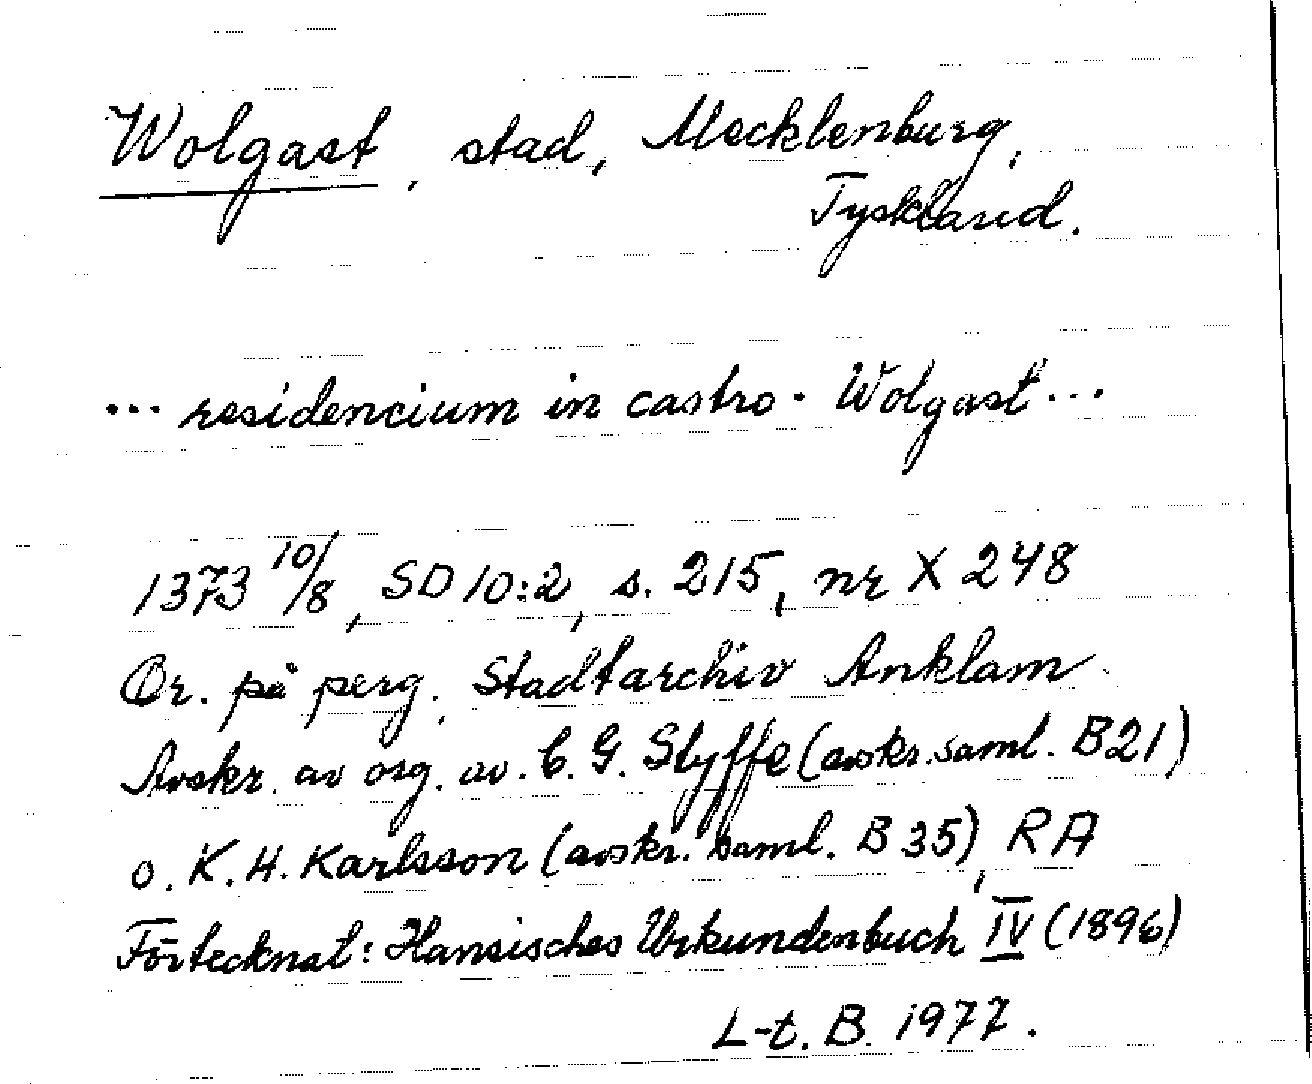 Wolgast, stad, Mecklenburg,
Tyskland.
... residencium in castro. Wolgast ...
1373 10/8, SD 10:2, s. 215, nr X 248
Or. på perg., Stadtarchiv Anklam
Avskr. av org. av. C. G. Styffe (avskr. saml. B21)
o. K. H. Karlsson (avskr. saml. B 35), RA
Förtecknat: Hansisches Urkundenbuch IV (1896)
L-t. B. 1977.